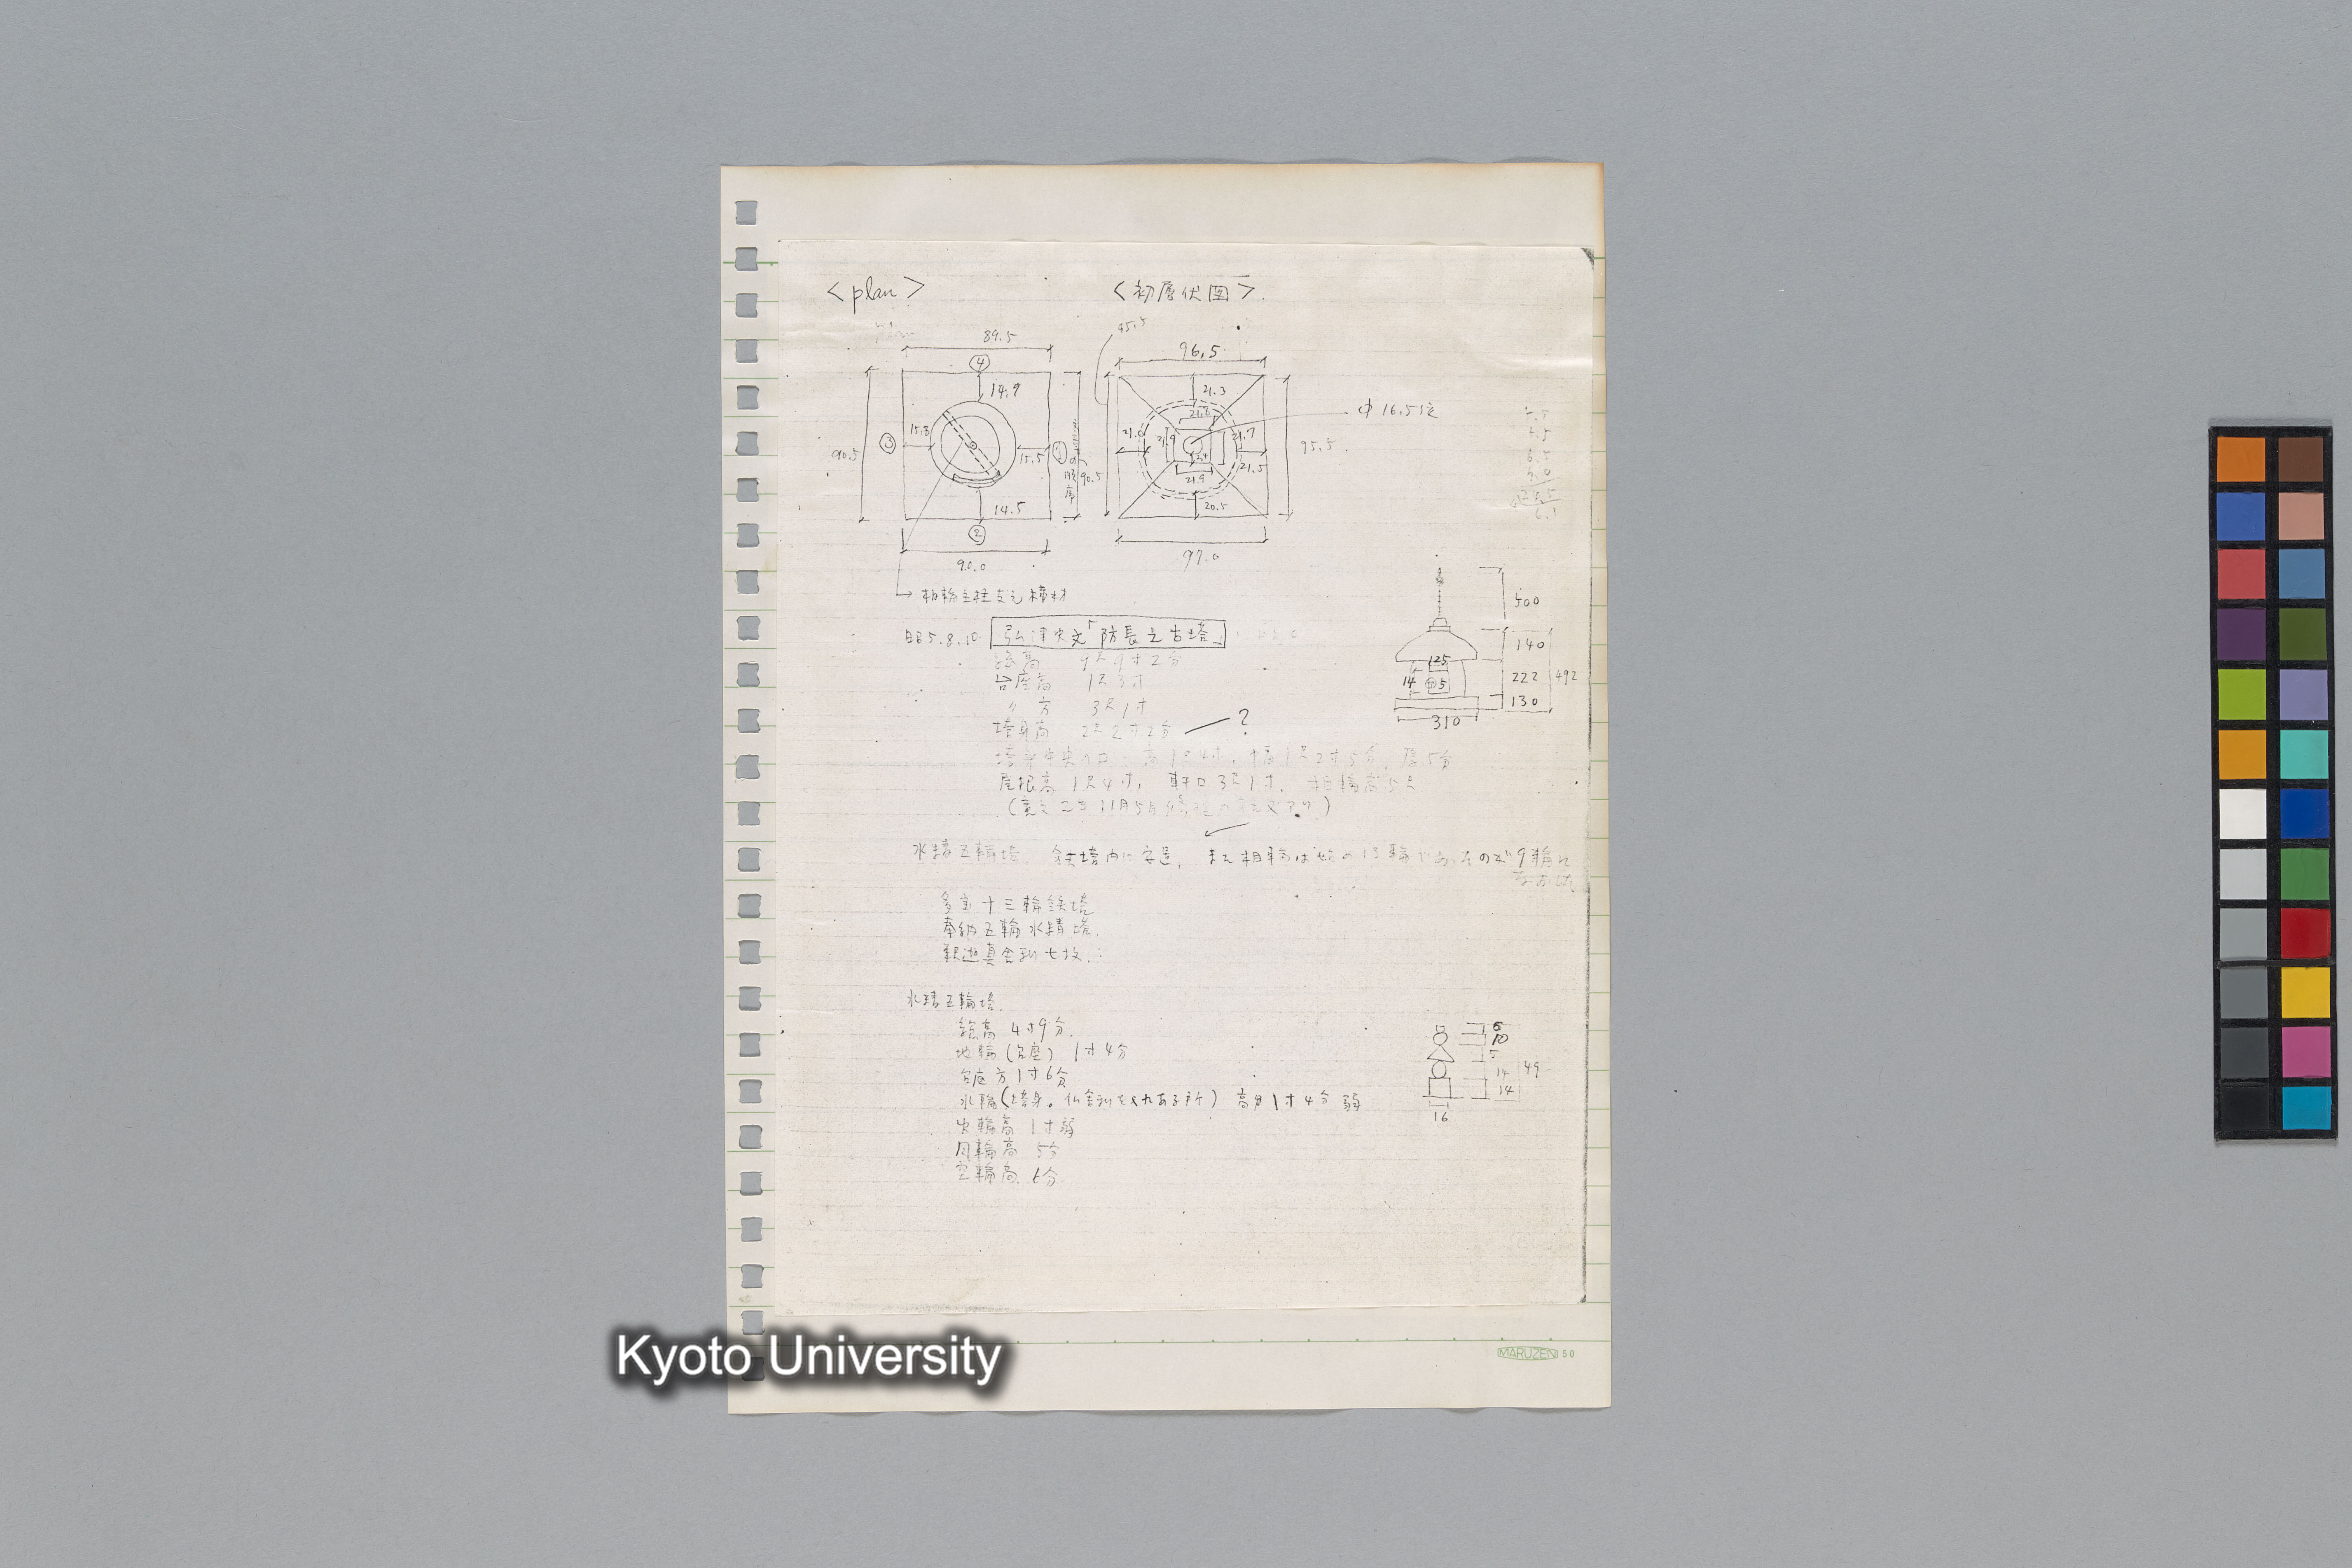 <plan>
<初層伏図>
89.5
④
14.9
15.8
③
15.5
①の順序
90.5
90.5
14.5
②
90.0
相輪主柱支え横材
95.5
96.5
21.3
21.9
21.7
21.5
21.9
20.5
95.5
97.0
φ 16.5位
昭5.8.10 弘津史文「防長之古塔」
総高 9尺9寸2分
台座高 1尺3寸
〃 方 3尺1寸
塔身高 2尺2寸2分 ?
塔身中央入口: 高1尺4寸, 幅1尺2寸5分, 厚5分
屋根高 1尺4寸, 軒口3尺1寸. 相輪高5尺
500
140
222
130
492
125
14
5
310
水精五輪塔 鉄塔内に安置, また相輪は始め13輪であったのが9輪に
なおした
多宝十三輪鉄塔
奉納五輪水精塔.
釈迦真舎利七枚.
水精五輪塔.
総高 4寸9分.
地輪(台座) 1寸4分
台座方1寸6分
水輪(塔身。仏舎利を入れある所) 高サ1寸4分弱
火輪高 1寸弱
風輪高 5分
空輪高. 6分
6
10
5
14
14
49
16
MARUZEN 50
Kyoto University